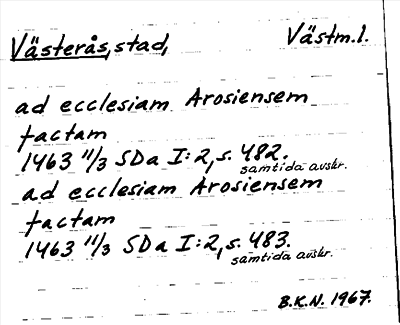 Västerås, stad, Västm.l.
ad ecclesiam Arosiensem
factam
1463 11/3 SDa I:2, s. 482.
samtida avskr.
ad ecclesiam Arosiensem
factam
1463 11/3 SDa I:2, s. 483.
samtida avskr.
B.K.N. 1967.